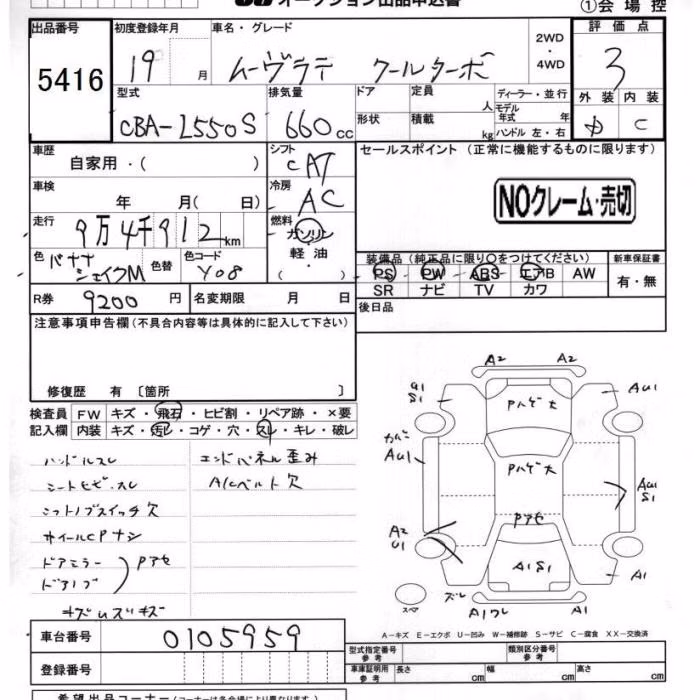 オークション出品申込書
①会場控
出品番号
5416
初度登録年月
19 月
車名・グレード
ムーヴラテ クールターボ
2WD
・
4WD
評価点
3
外装 内装
C
型式
CBA-L550S
排気量
660cc
ドア
形状
定員 人
積載 kg
ディーラー・並行
モデル年式 年
ハンドル 左・右
車歴
自家用・( )
シフト
CAT
セールスポイント (正常に機能するものに限ります)
NOクレーム・売切
車検
年 月( 日)
冷房
AC
走行
9万4千912km
燃料
ガソリン
軽油
・( )
色
バナナシェイクM
色替
色コード
Y08
装備品(純正品に限り○をつけてください)
PS PW ABS エアB AW
SR ナビ TV カワ
新車保証書
有・無
R券
9200円
名変期限 月 日
後日品
注意事項申告欄(不具合内容等は具体的に記入して下さい)
修復歴 有〔箇所 〕
検査員記入欄
FW キズ・飛石・ヒビ割・リペア跡・×要
内装 キズ・汚レ・コゲ・穴・スレ・キレ・破レ
ハンドルスレ
シートヒビ・スレ
シフトノブスイッチ欠
ホイールCPナシ
ドアミラー
ドアノブ
Pアセ
エンドパネル歪み
A/Cベルト欠
A2 A2
U1
S1
AU1
Pハゲ大
カバー
AU1
Pハゲ大
AU1
S1
A2
U1
Pアセ
A1S1
A1
ズレ
スペア
A1ワレ
A1
A-キズ E-エクボ U-凹み W-補修跡 S-サビ C-腐食 XX-交換済
車台番号
0105959
登録番号
型式指定番号
参考
類別区分番号
参考
車庫証明用
参考
長さ cm
幅 cm
高さ cm
希望出品コーナー